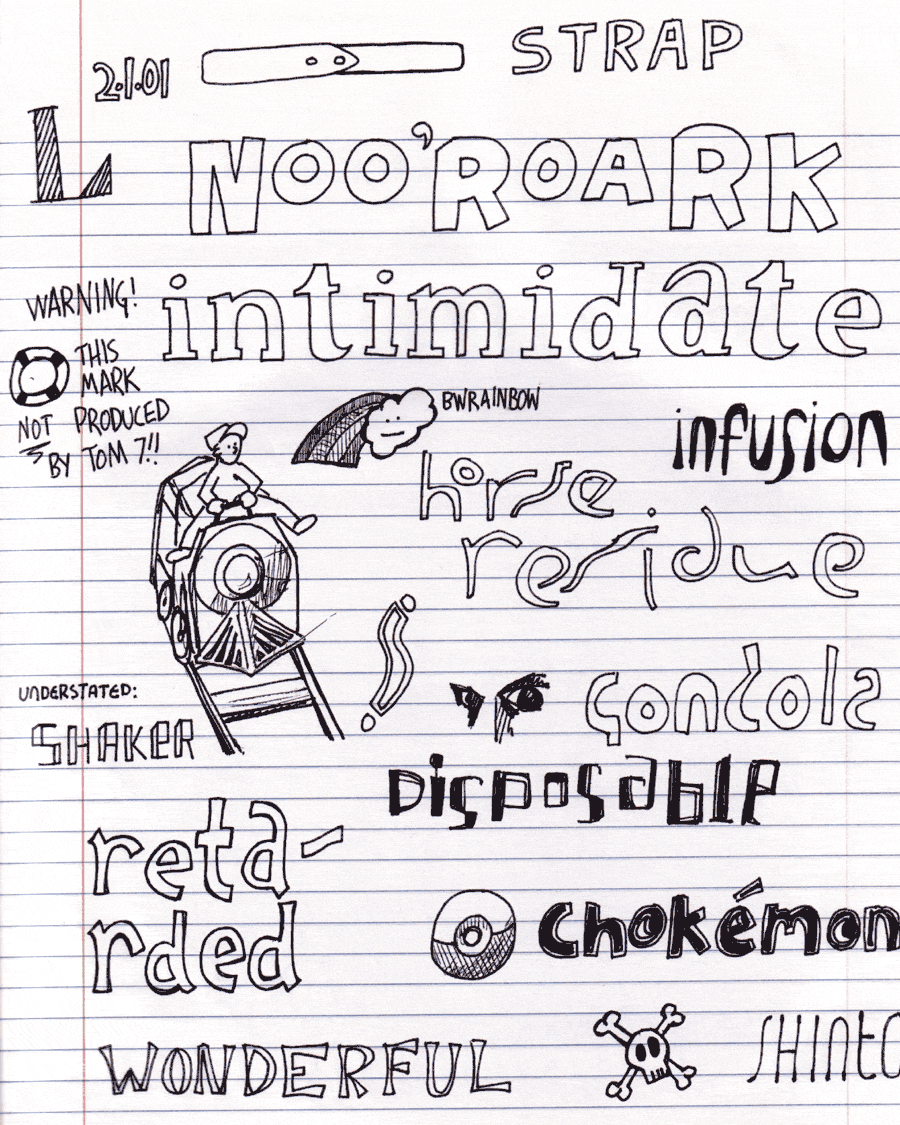 2.1.01
STRAP
L
NOO'ROARK
WARNING!
THIS
MARK
NOT PRODUCED
BY TOM 7!!
intimidate
BWRAINBOW
infusion
horse
residue
UNDERSTATED:
SHAKER
gondola
Disposable
reta-
rded
Chokémon
WONDERFUL
SHINTO